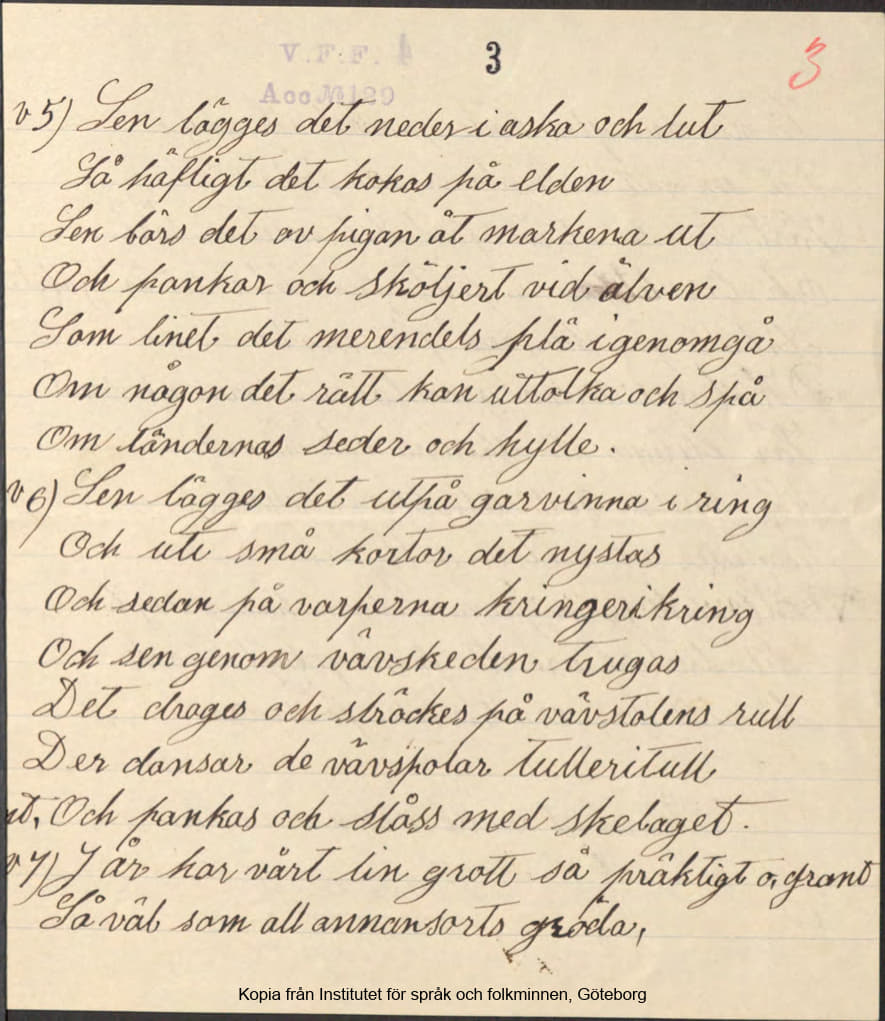 V.F.F. 3 3
Acc № 129
v 5) Sen lägges det neder i aska och lut
Så häftigt det kokas på elden
Sen bärs det av pigan åt markena ut
Och pankar och sköljert vid älven
Som linet det merendels plä igenomgå
Om någon det rätt kan uttolka och spå
Om ländernas seder och hylle.
v 6) Sen lägges det utpå garvinna i ring
Och uti små kortor det nystas
Och sedan på varperna kringerikring
Och sen genom vävskeden trugas
Det drages och sträckes på vävstolens rull
Der dansar de vävspolar tulleritull
Och pankas och slåss med skelaget.
v 7) I år har vårt lin grott så präktigt o, grant
Så väl som all annansorts gröda,
Kopia från Institutet för språk och folkminnen, Göteborg